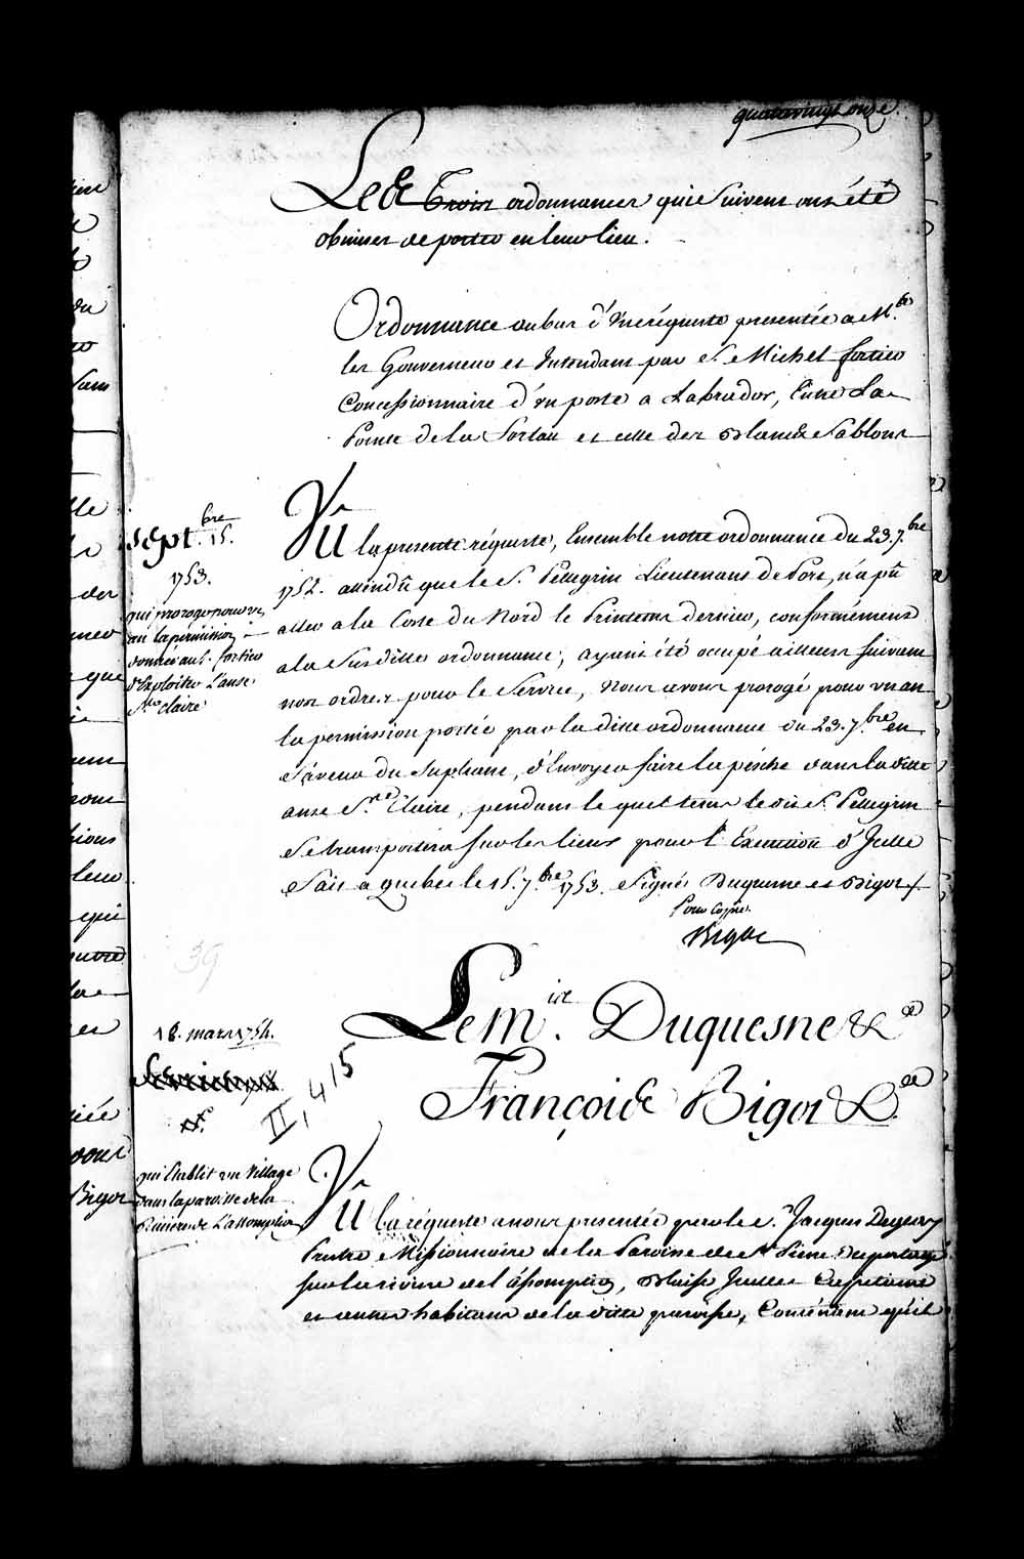 quatrevingt onze.
Les Trois ordonnances qui Suivent ont été
obmises de porter en leur lieu.
Ordonnance au bas d'une réqueste presentée a M.rs
les Gouverneur et Intendant par S. Michel fortier
Concessionnaire d'un poste a Labrador,
Pointe de la Fortau et celle des Blancs Sablons
Sept.bre 15.
1753.
qui proroge pour un
an la permission
donnée au S. fortier
d'Exploiter L'anse
S.te Claire
Vu la presente réqueste, Ensemble notre ordonnance du 23. 7.bre
1752. attendû que le S. Pellegrin Lieutenant de Port, n'a pû
aller a la Coste du Nord le Printems dernier, conformément
a la Susditte ordonnance, ayant été ocupé ailleurs suivant
nos ordres pour le Service, Nous avons prorogé pour un an
la permission portée par la ditte ordonnance du 23. 7.bre en
faveur du Supliant, d'Envoyer faire la pêche dans la ditte
anse S.te Claire, pendant lequel tems le dit S. Pellegrin
Se transportera sur les lieux pour l'Execution d'Icelle
Fait a quebec le 15. 7.bre 1753. Signés Duquesne et Bigot
Pour Copie
Bigot
39
18. mars 1754.
II, 415
Le M.is Duquesne &.a
François Bigot &.a
qui Etablit un Village
dans la paroisse de la
Riviere de L'assomption
Vu la réqueste a nous presentée par le S. Jacques Degeay
Prêtre Missionnaire de la Paroisse de S.t Pierre Duportage
sur la riviere de l'assomption, Blaise Juillet Capitaine
et autres habitans de la ditte paroisse, Contenant qu'il